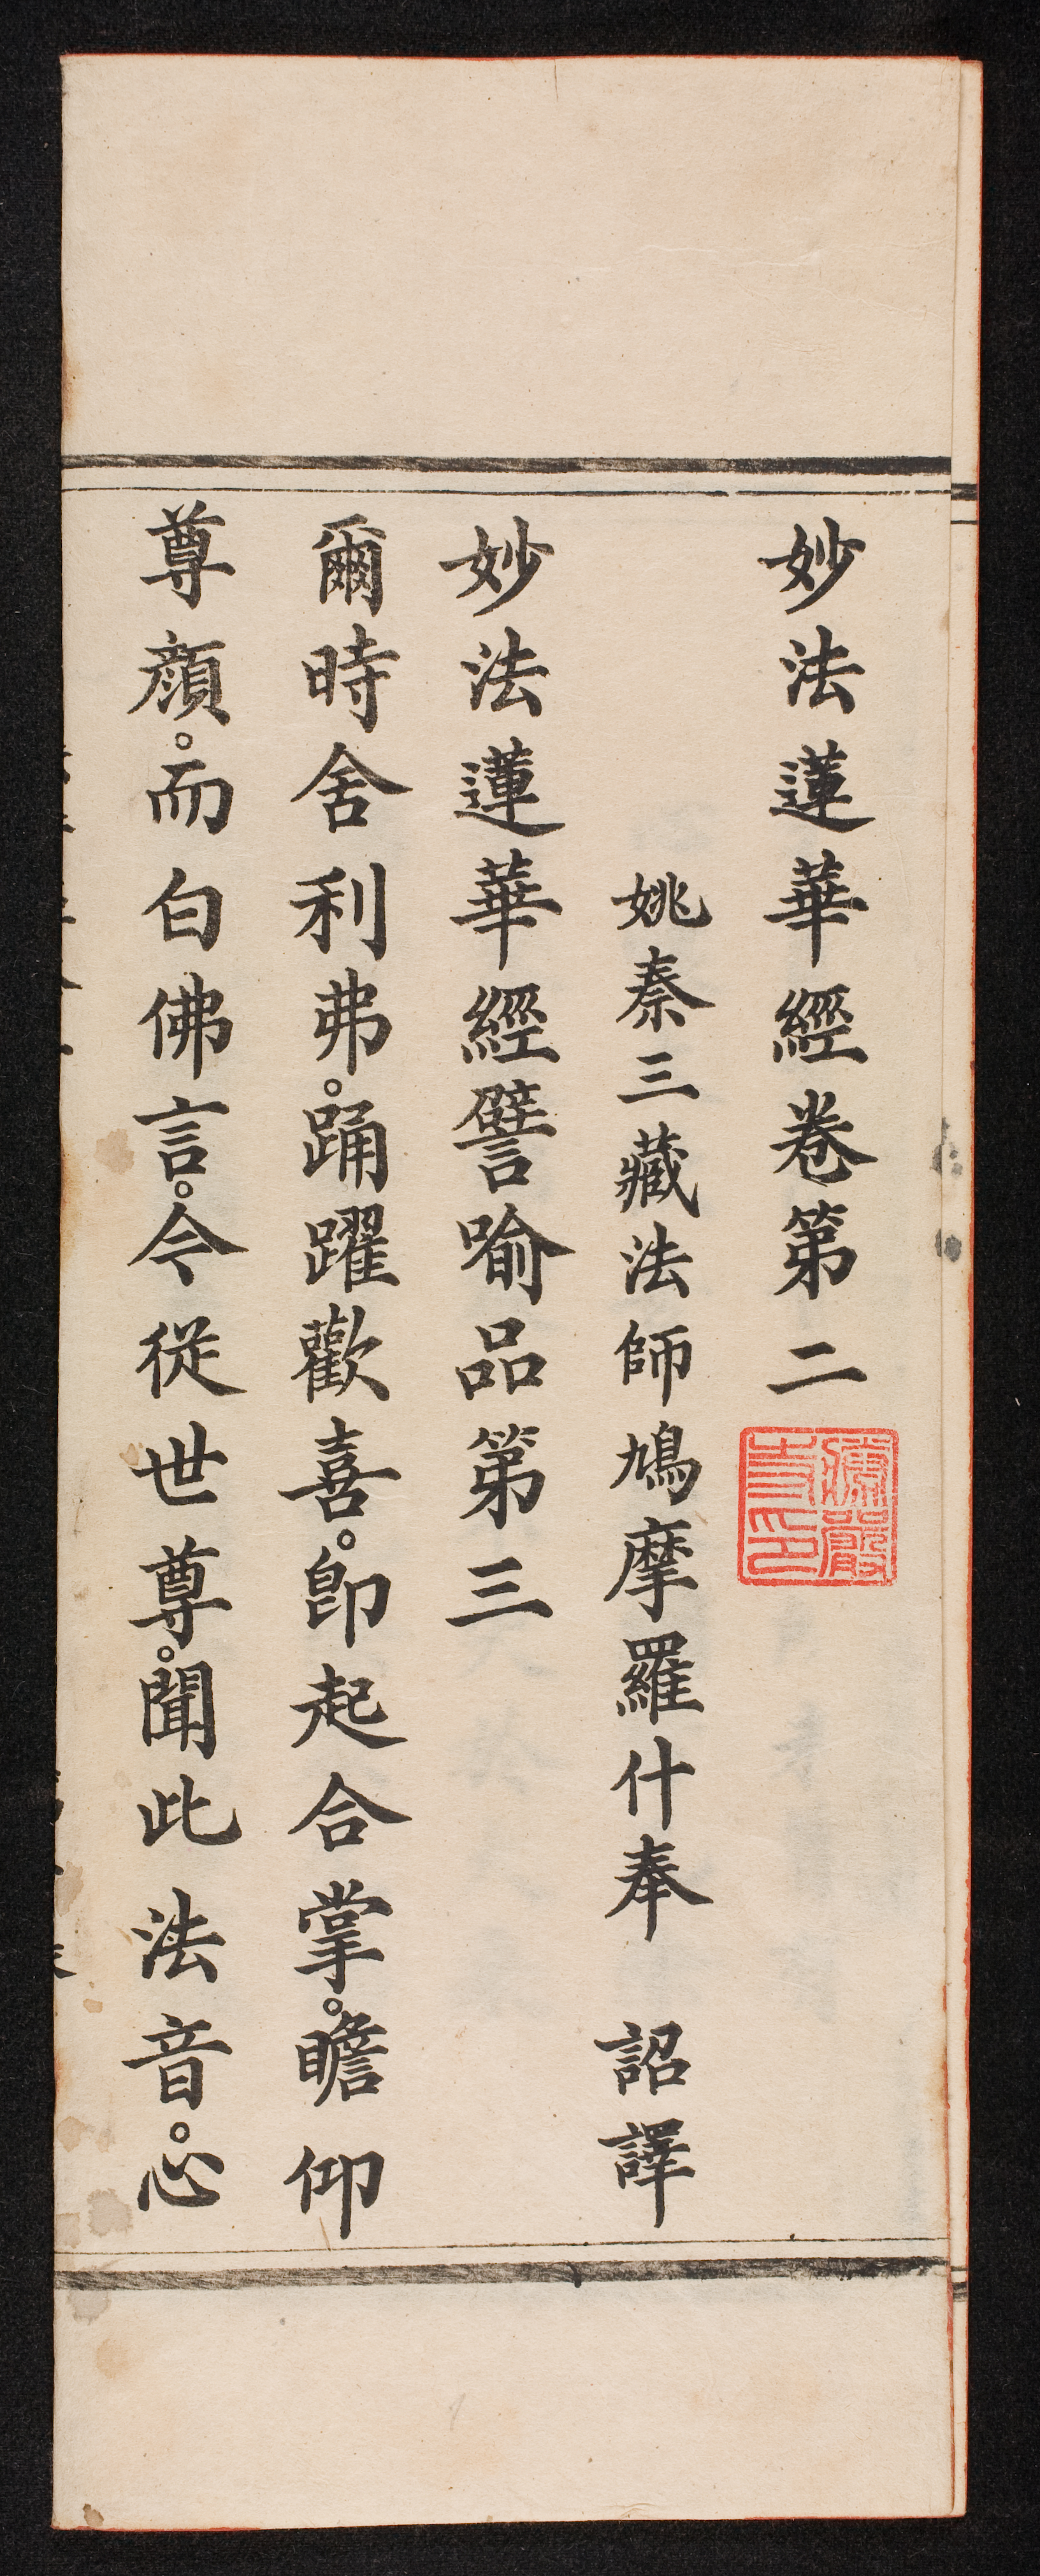 妙法蓮華經卷第二
姚秦三藏法師鳩摩羅什奉　詔譯
妙法蓮華經譬喻品第三
爾時舍利弗。踊躍歡喜。卽起合掌。瞻仰
尊顏。而白佛言。今從世尊。聞此法音。心